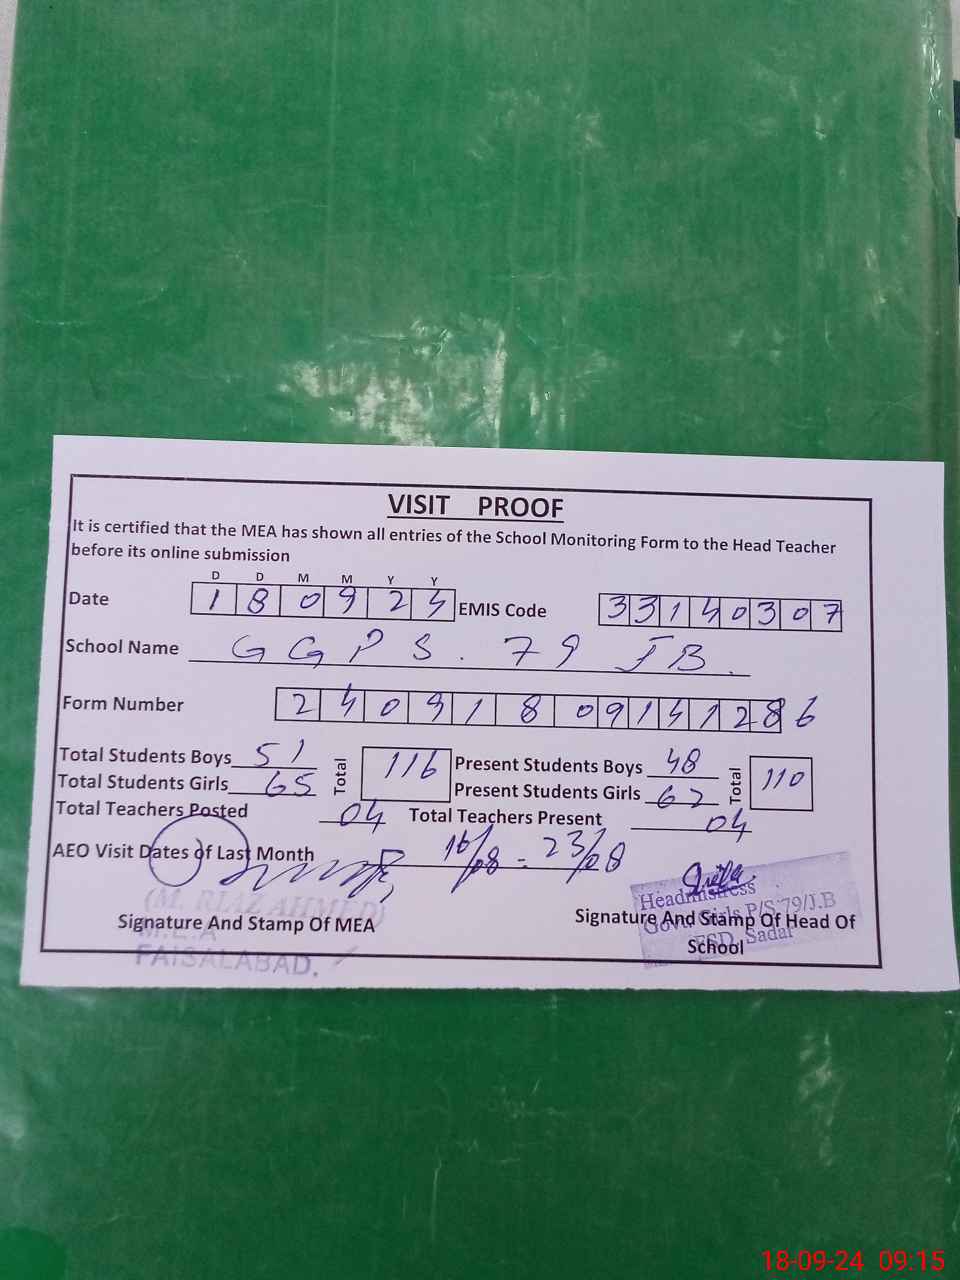 VISIT PROOF
It is certified that the MEA has shown all entries of the School Monitoring Form to the Head Teacher
before its online submission
D D M M Y Y
Date 1 8 0 9 2 4 EMIS Code 3 3 1 4 0 3 0 7
School Name G G P S . 79 JB.
Form Number 2 4 0 9 1 8 0 9 1 4 1 2 8 6
Total Students Boys 51 Total 116 Present Students Boys 48 Total 110
Total Students Girls 65 Present Students Girls 62
Total Teachers Posted 04 Total Teachers Present 04
AEO Visit Dates of Last Month 16/08 - 23/08
(M. RIAZ AHMED)
M.E.A
FAISALABAD.
Signature And Stamp Of MEA
Headmistress
Govt. Girls P/S 79/J.B
FSD. Sadar
Signature And Stamp Of Head Of
School
18-09-24 09:15